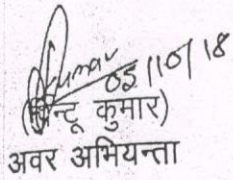 Kumar
05/10/18
कुमार)
अवर अभियन्ता